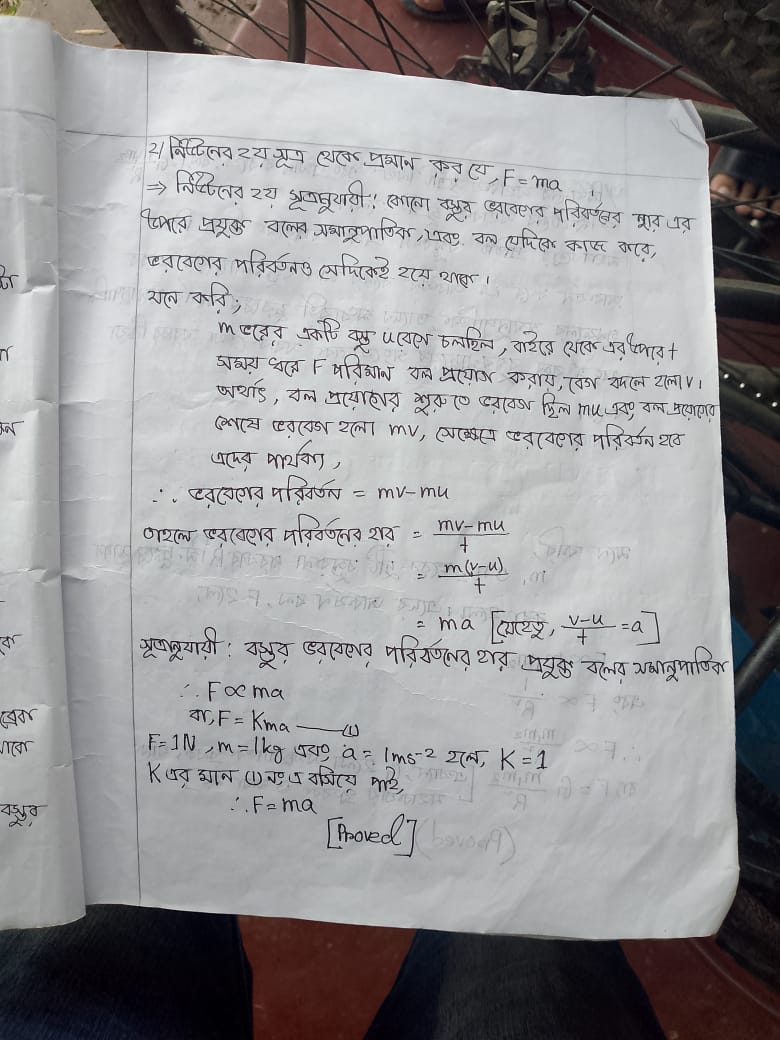 ২। নিউটনের ২য় সূত্র থেকে প্রমান কর যে, F = ma
⇒ নিউটনের ২য় সূত্রানুযায়ী: কোনো বস্তুর ভরবেগের পরিবর্তনের হার এর
উপরে প্রযুক্ত বলের সমানুপাতিক, এবং বল যেদিকে কাজ করে,
ভরবেগের পরিবর্তনও সেদিকেই হয়ে থাকে।
মনে করি;
m ভরের একটি বস্তু u বেগে চলছিল, বাইরে থেকে এর উপরে t
সময় ধরে F পরিমান বল প্রয়োগ করায়, বেগ বদলে হলো v।
অর্থাৎ, বল প্রয়োগের শুরুতে ভরবেগ ছিল mu এবং বল প্রয়োগের
শেষে ভরবেগ হলো mv, সেক্ষেত্রে ভরবেগের পরিবর্তন হবে
এদের পার্থক্য,
∴ ভরবেগের পরিবর্তন = mv-mu
তাহলে ভরবেগের পরিবর্তনের হার = (mv-mu)/t
= m(v-u)/t
= ma [যেহেতু, (v-u)/t = a]
সূত্রানুযায়ী: বস্তুর ভরবেগের পরিবর্তনের হার প্রযুক্ত বলের সমানুপাতিক
∴ F∝ma
বা, F = Kma —— (i)
F = 1N, m = 1kg এবং a = 1ms⁻² হলে, K = 1
K এর মান (i) নং এ বসিয়ে পাই,
∴ F = ma
[Proved]
টা
ক্ত
বস্তুর